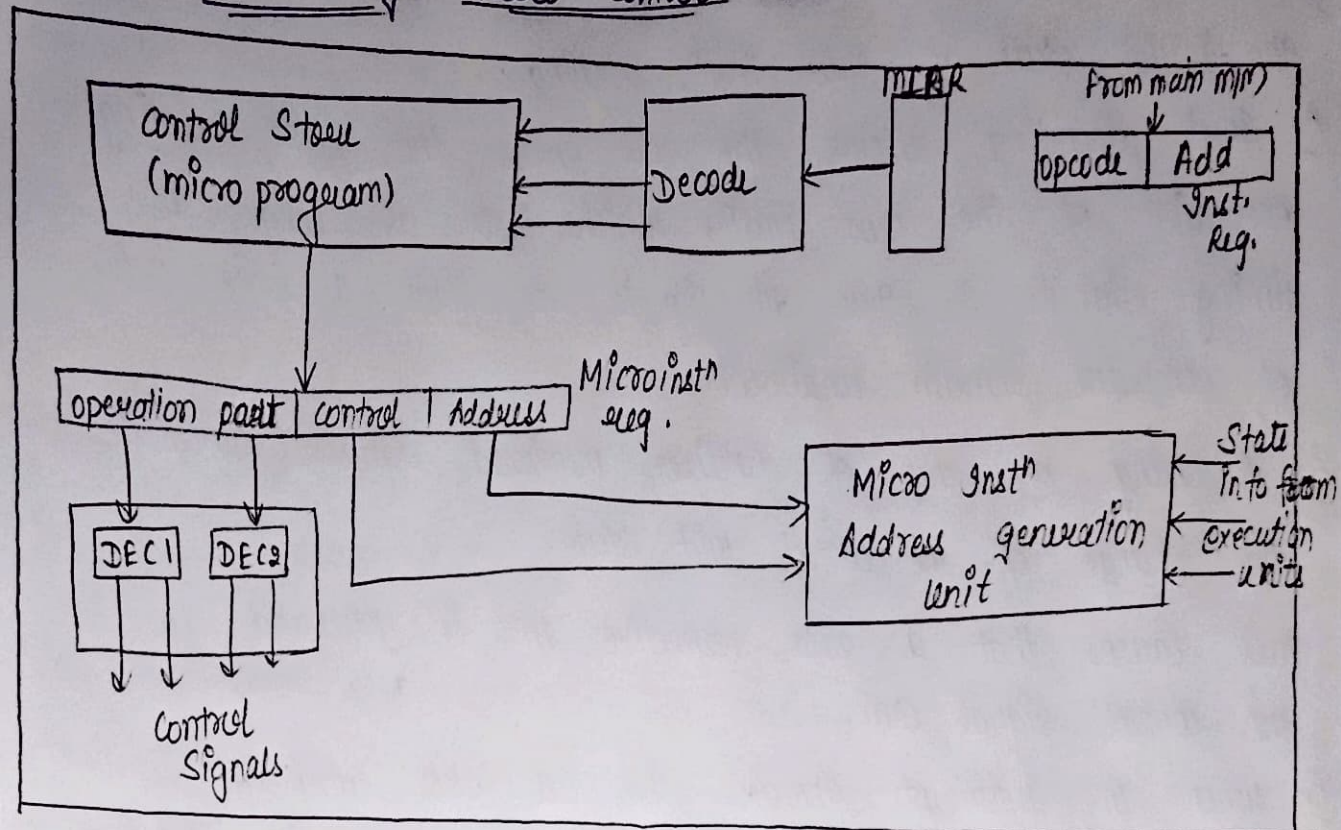 MIAR
From main m/m)
Control Store
(micro program)
Decode
opcode Add
Inst.
Reg.
operation part control Address
Microinstⁿ
reg.
DEC1 DEC2
Control
Signals
Micro Instⁿ
Address generation
Unit
State
Info from
execution
units